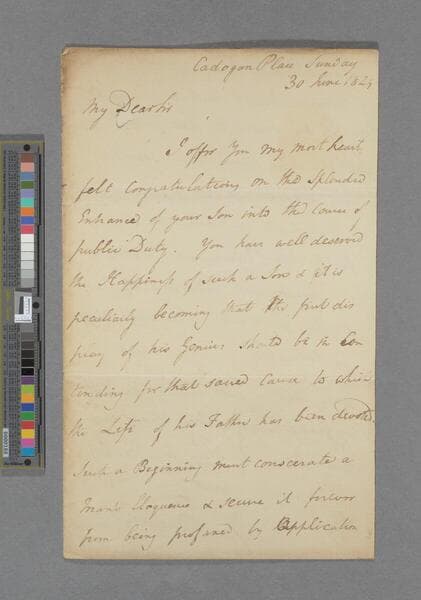 Cadogan Place Sunday
30 June 182
My Dear Sir
I offer You my most heart
felt Congratulations on the Splendid
Entrance of your Son into the Course of
public Duty. You have well deserved
the Happiness of such a Son & it is
peculiarly becoming that the first dis
play of his Genius should be in Con
tending for that sacred Cause to which
the Life of his Father has been devoted.
Such a Beginning must consecrate a
Man's Eloquence & secure it forever
from being profaned by Application